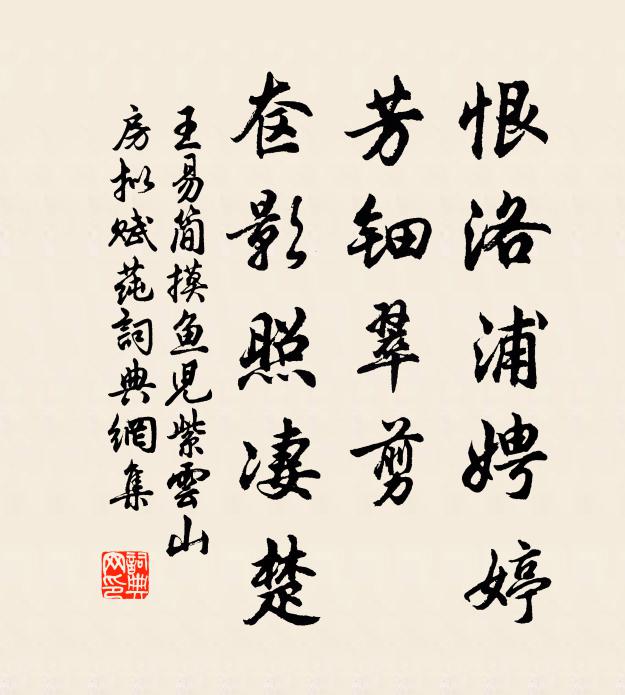 恨洛浦娉婷
芳钿翠剪
奁影照凄楚
王易简摸鱼儿紫雲山
房拟赋莼詞典網集
詞典網印